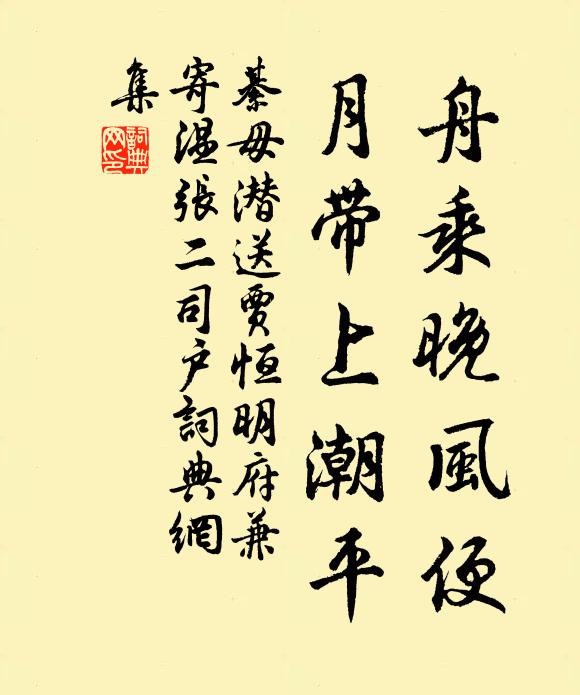 舟乘晚風便
月帶上潮平
綦毋潛送賈恒明府兼
寄溫張二司户詞典網
集
詞典網印